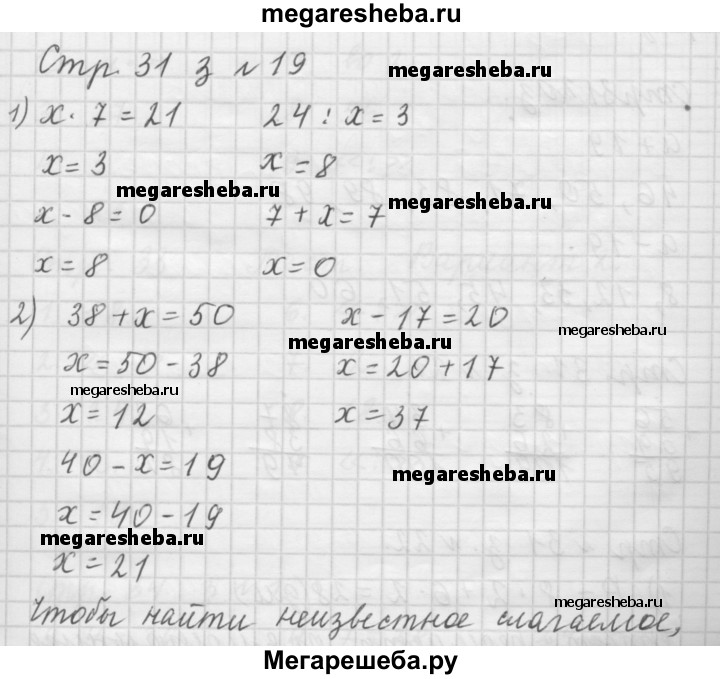 megaresheba.ru
Стр. 31 з № 19
megaresheba.ru
1) x · 7 = 21 24 : x = 3
x = 3 x = 8
megaresheba.ru megaresheba.ru
x - 8 = 0 7 + x = 7
x = 8 x = 0
2) 38 + x = 50 x - 17 = 20
megaresheba.ru megaresheba.ru
x = 50 - 38 x = 20 + 17
megaresheba.ru
x = 12 x = 37
40 - x = 19 megaresheba.ru
x = 40 - 19
megaresheba.ru
x = 21
megaresheba.ru
Чтобы найти неизвестное слагаемое,
Мегарешеба.ру